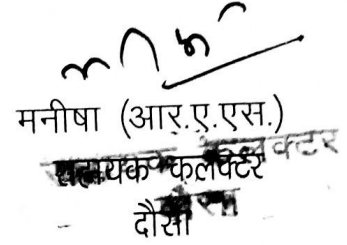 मनीषा (आर.ए.एस.)
सहायक कलक्टर
दौसा